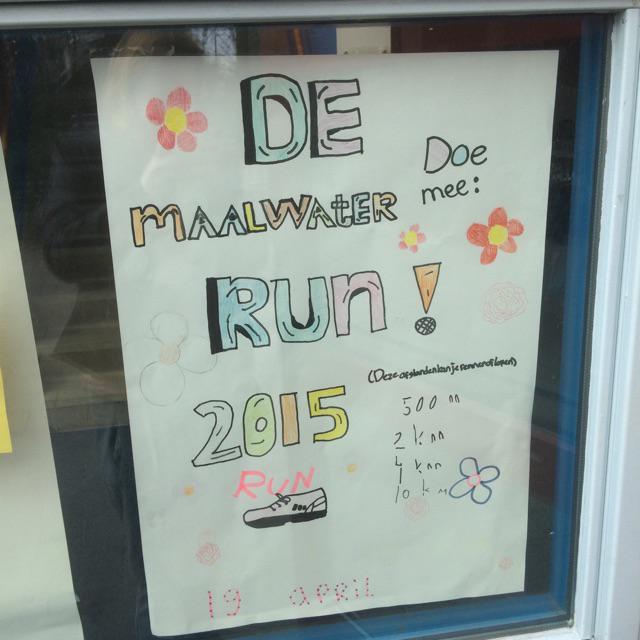 DE
MAALWATER
Doe
mee:
RUN!
2015
(Deze afstanden kan je rennen of lopen)
500 m
2 km
4 km
10 km
RUN
19 april